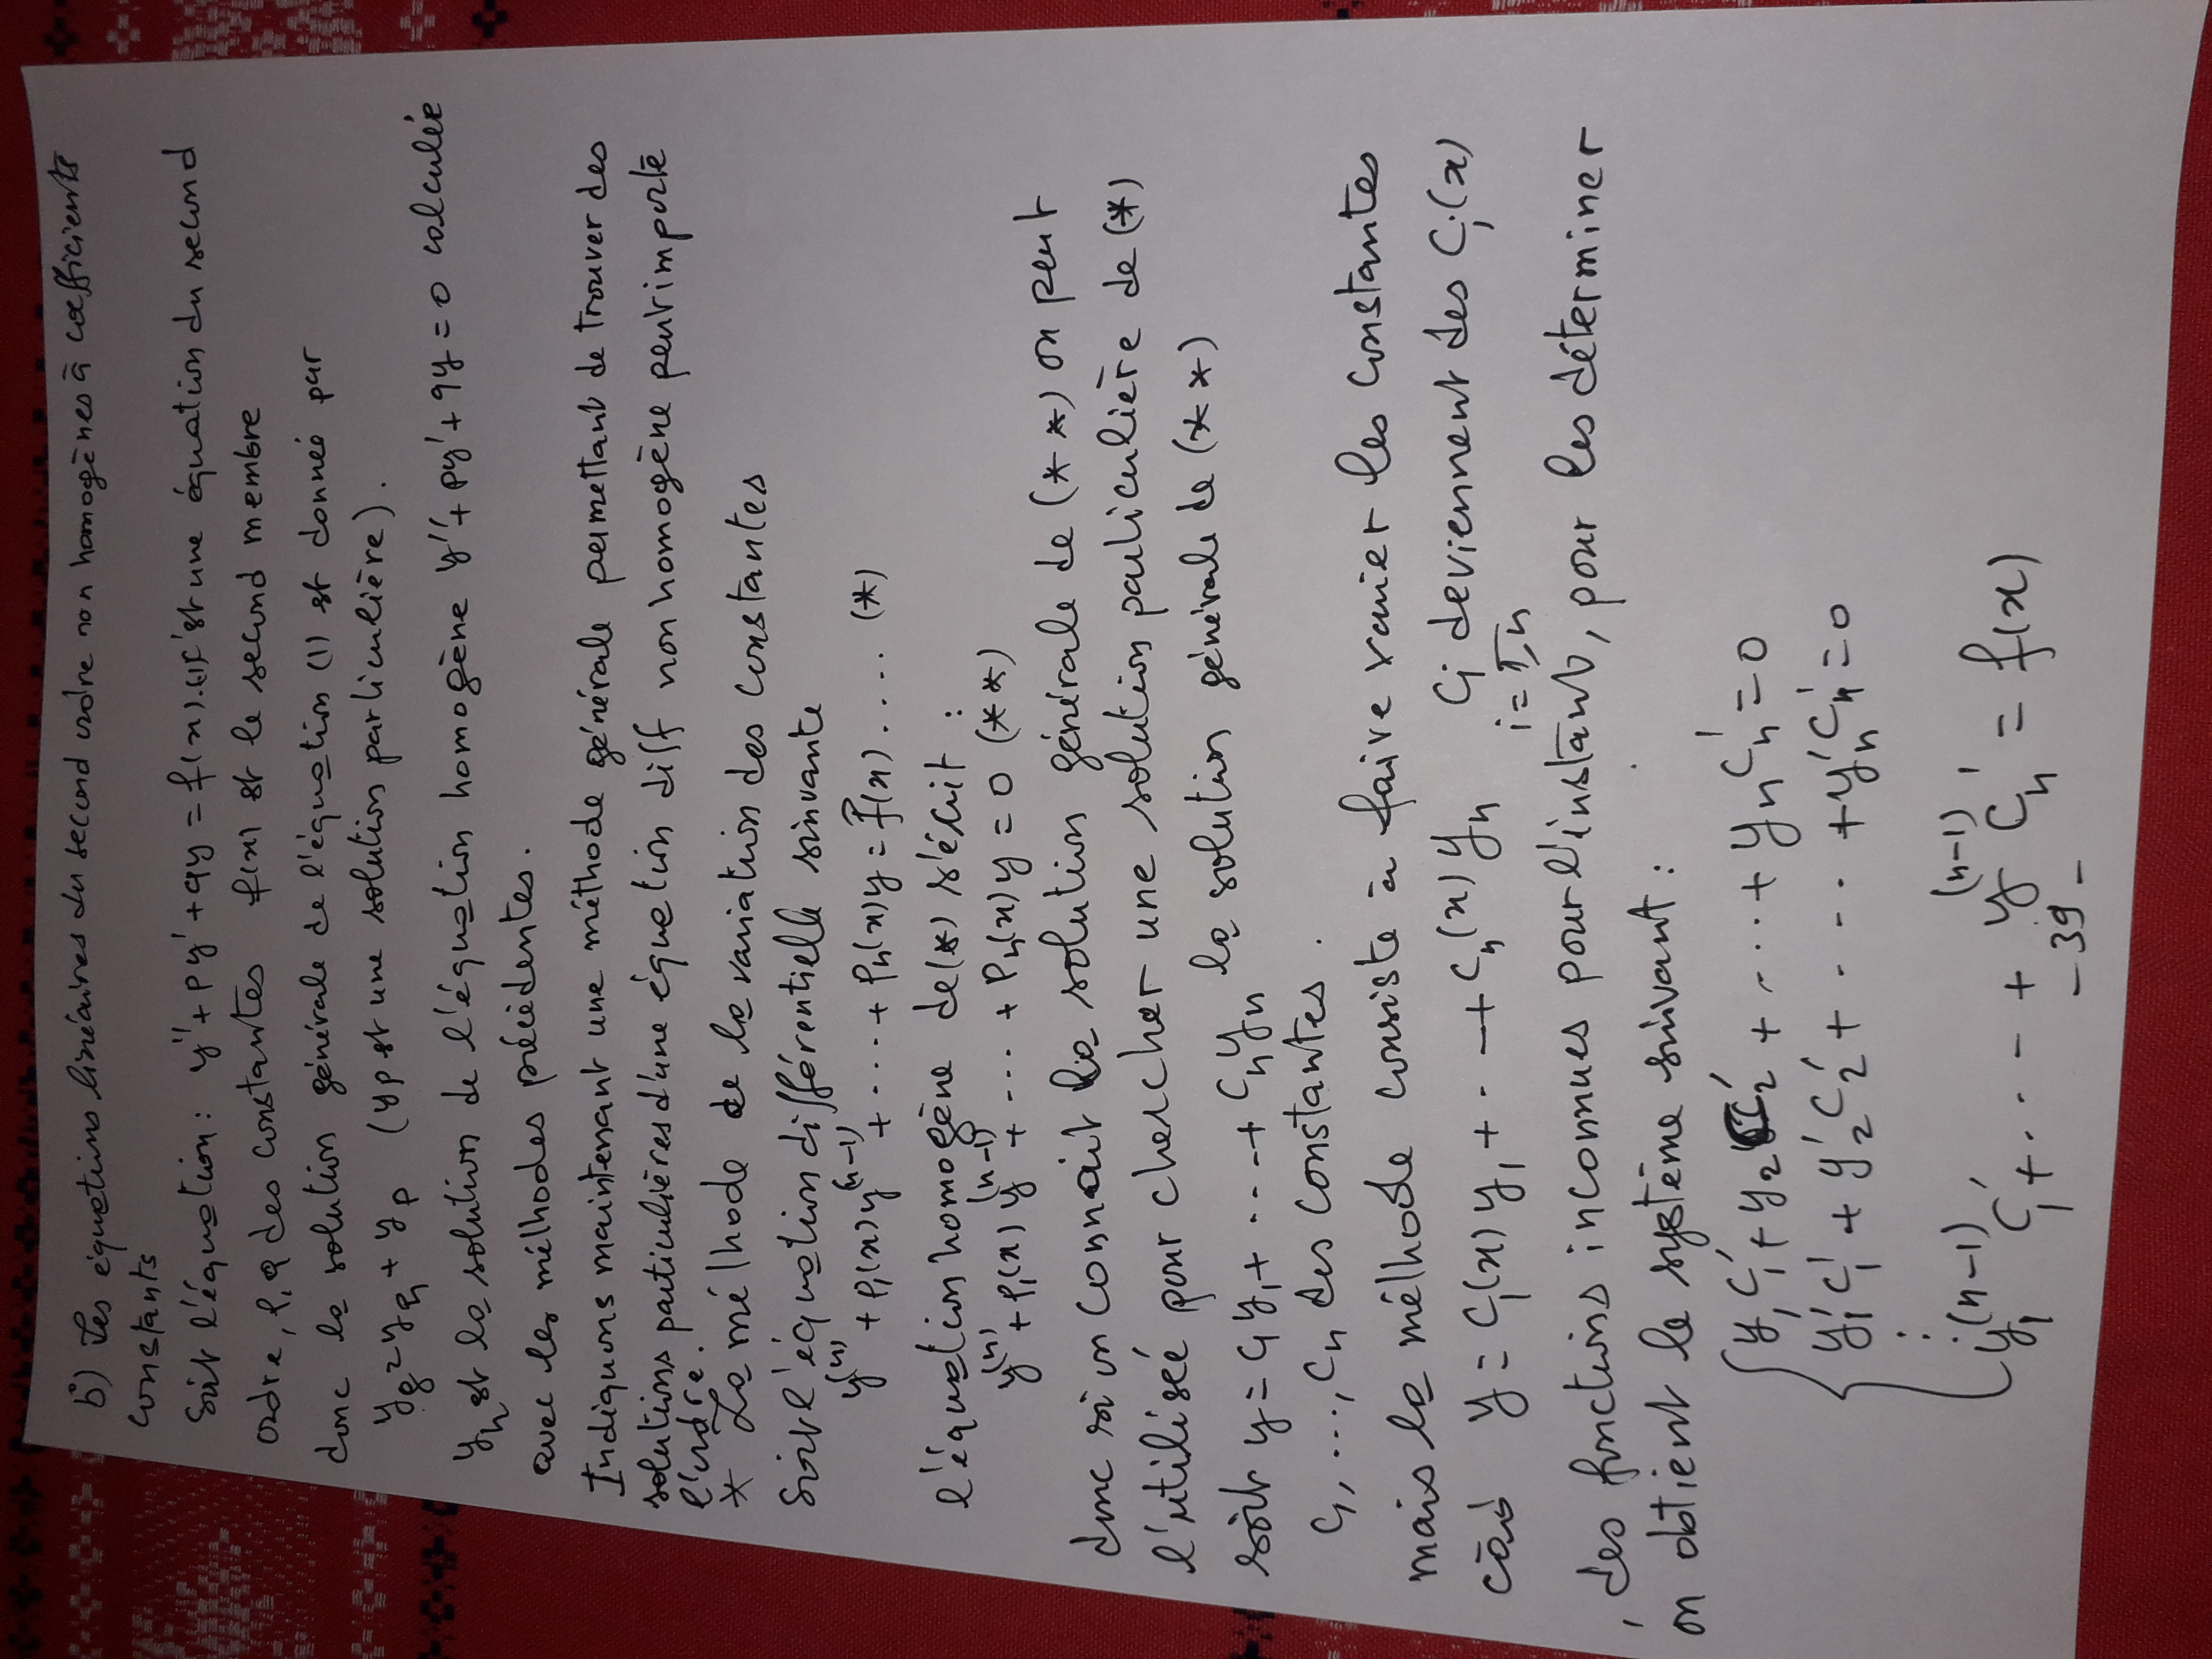 b) Les équations linéaires du second ordre non homogènes à coefficients
constants
Soit l'équation : y'' + py' + qy = f(x)..(1) est une équation du second
ordre, p, q des constantes f(x) est le second membre
donc la solution générale de l'équation (1) est donné par
yg = yh + yp (yp est une solution particulière).
yh est la solution de l'équation homogène y'' + py' + qy = 0 calculée
avec les méthodes précédentes.
Indiquons maintenant une méthode générale permettant de trouver des
solutions particulières d'une équation diff non homogène peut importe
l'ordre.
* La méthode de la variation des constantes
Soit l'équation différentielle suivante
y^(n) + P1(x) y^(n-1) + .... + Pn(x) y = f(x) .... (*)
l'équation homogène de (*) s'écrit :
y^(n) + P1(x) y^(n-1) + .... + Pn(x) y = 0 (**)
donc si on connait la solution générale de (**) on peut
l'utilisée pour chercher une solution particulière de (*)
soit y = C1 y1 + .... + Cn yn la solution générale de (**)
C1, ..., Cn des constantes.
mais la méthode consiste à faire varier les constantes
càd y = C1(x) y1 + .. - + Cn(x) yn Ci deviennent des Ci(x)
i = 1,n
, des fonctions inconnues pour l'instant, pour les déterminer
on obtient le système suivant :
y1 C1' + y2 C2' + .... + yn Cn' = 0
y1' C1' + y2' C2' + .... + yn' Cn' = 0
⋮
y1^(n-1) C1' + ... - + y^(n-1) Cn' = f(x)
- 39 -